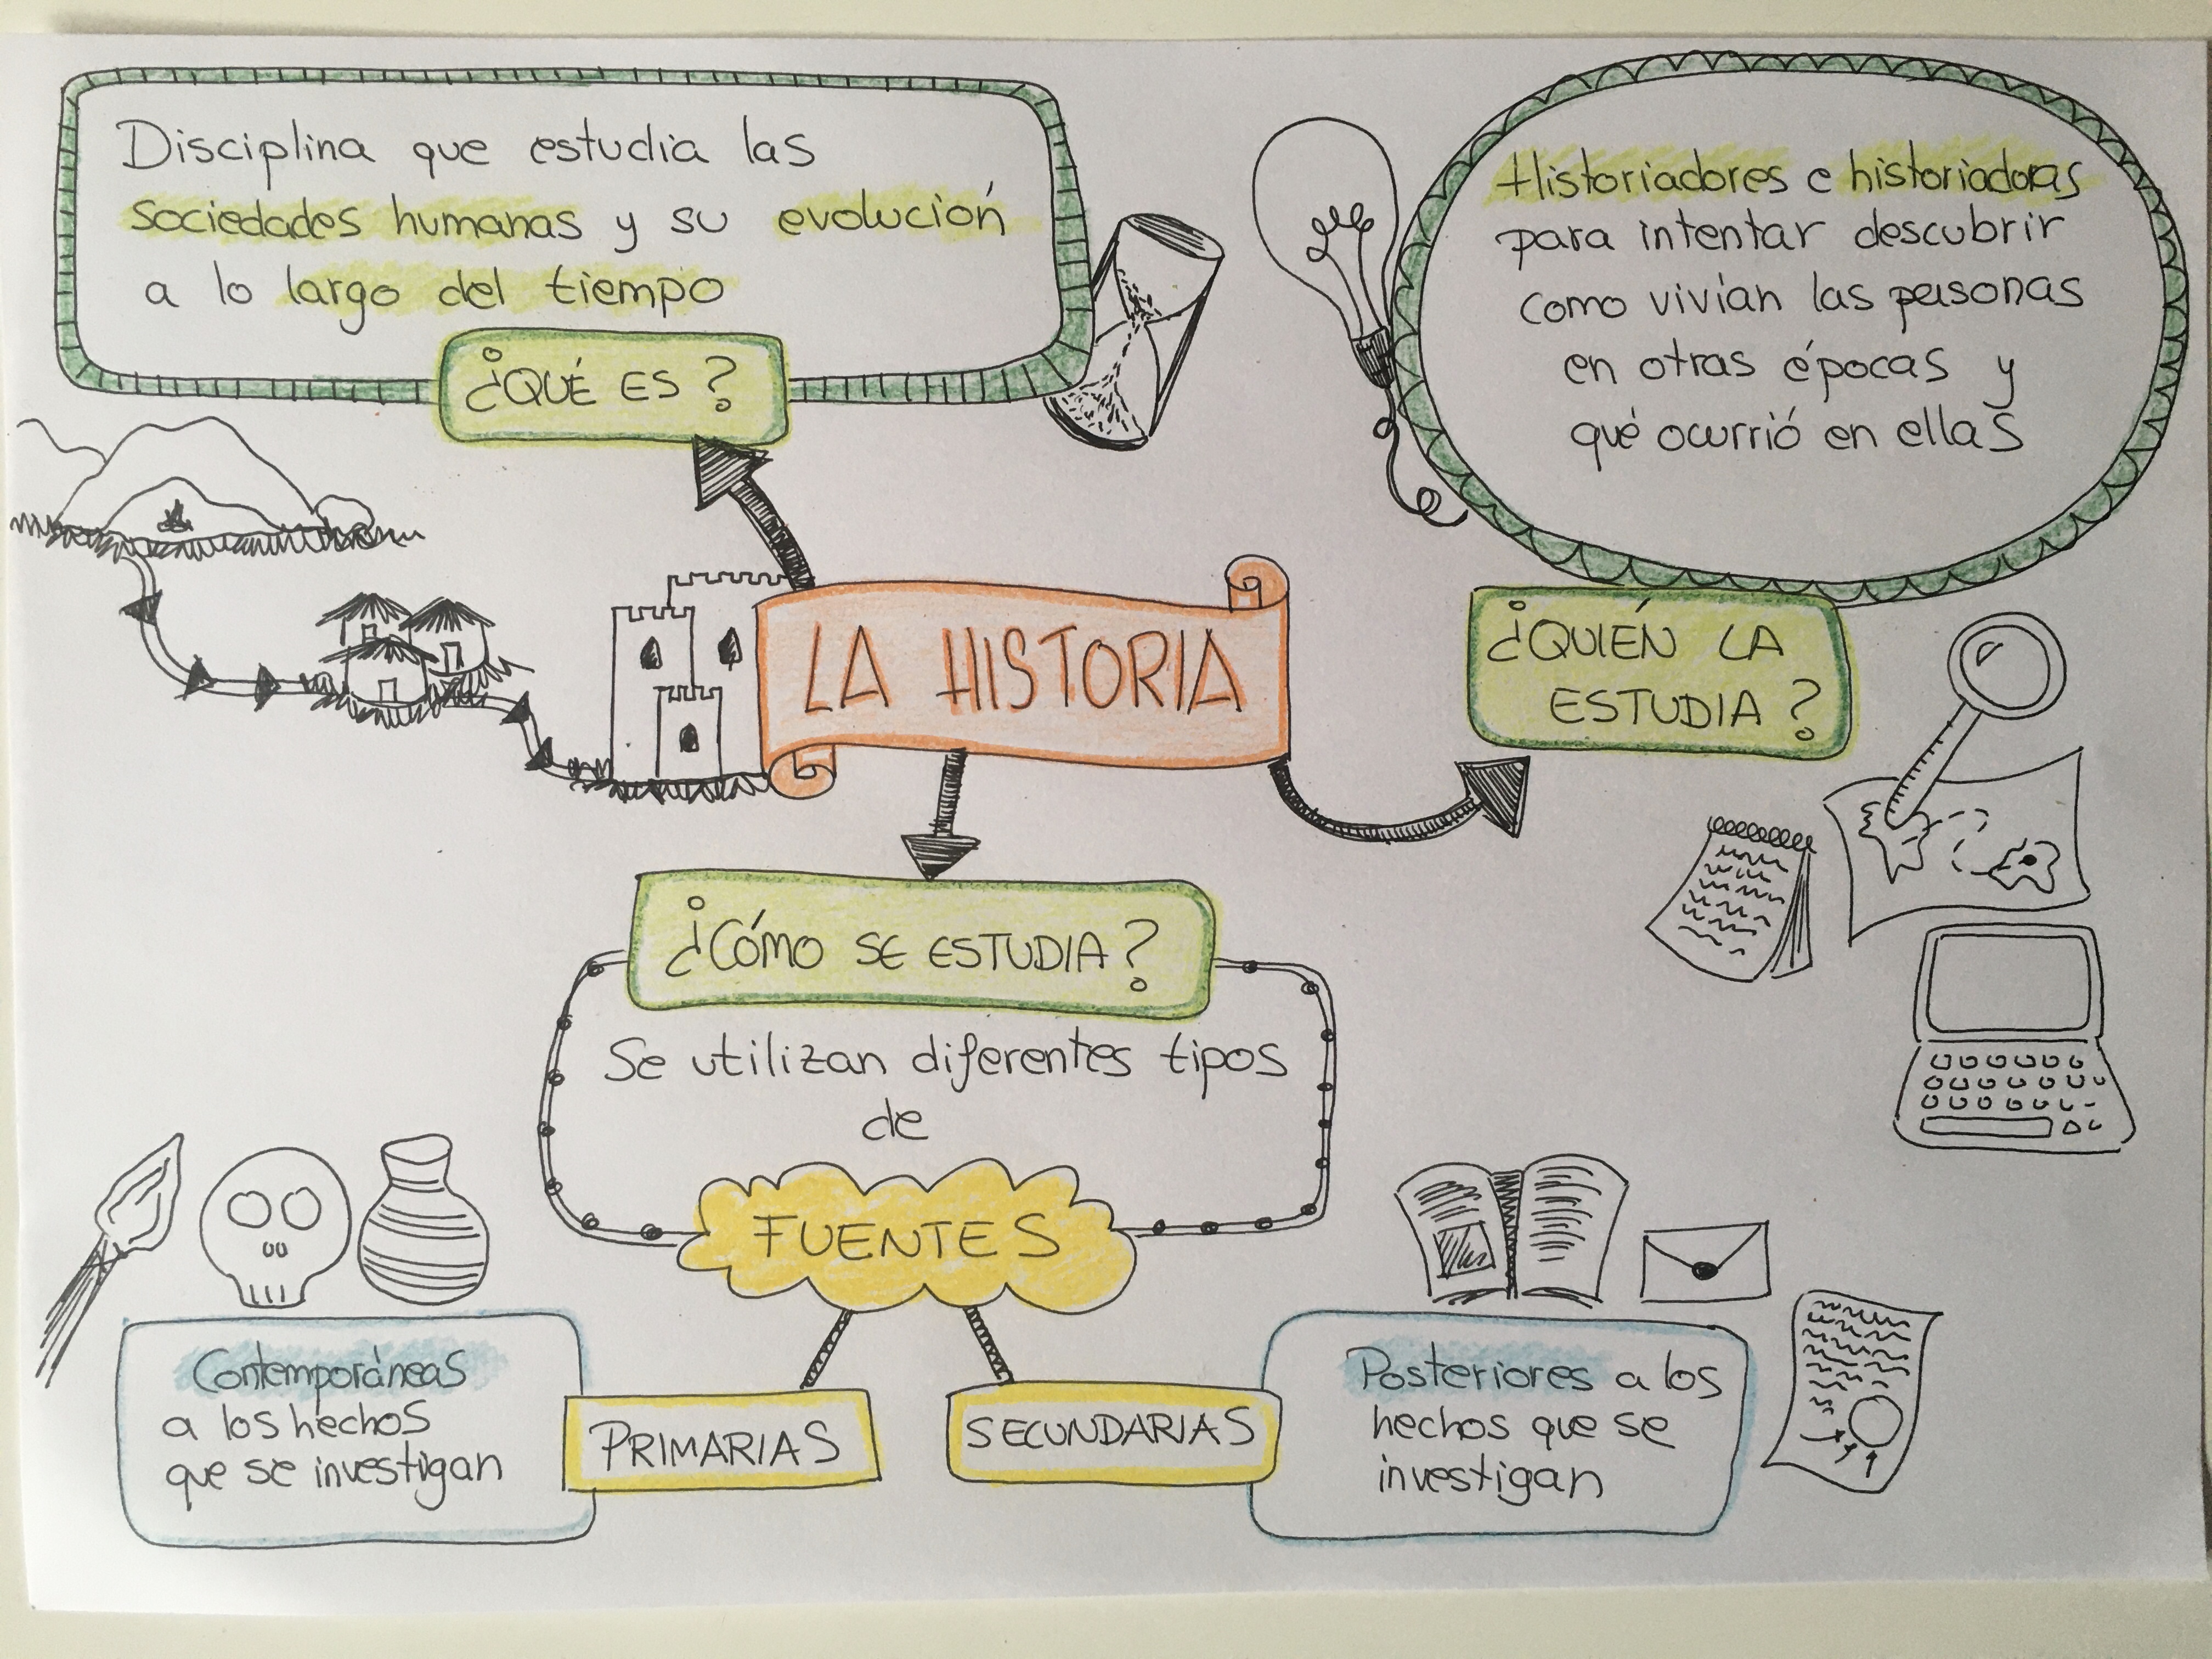 Disciplina que estudia las
sociedades humanas y su evolución
a lo largo del tiempo
¿QUÉ ES?
Historiadores e historiadoras
para intentar descubrir
como vivían las personas
en otras épocas y
qué ocurrió en ellas
¿QUIÉN LA
ESTUDIA?
LA HISTORIA
¿CÓMO SE ESTUDIA?
Se utilizan diferentes tipos
de
FUENTES
Contemporáneas
a los hechos
que se investigan
PRIMARIAS
SECUNDARIAS
Posteriores a los
hechos que se
investigan